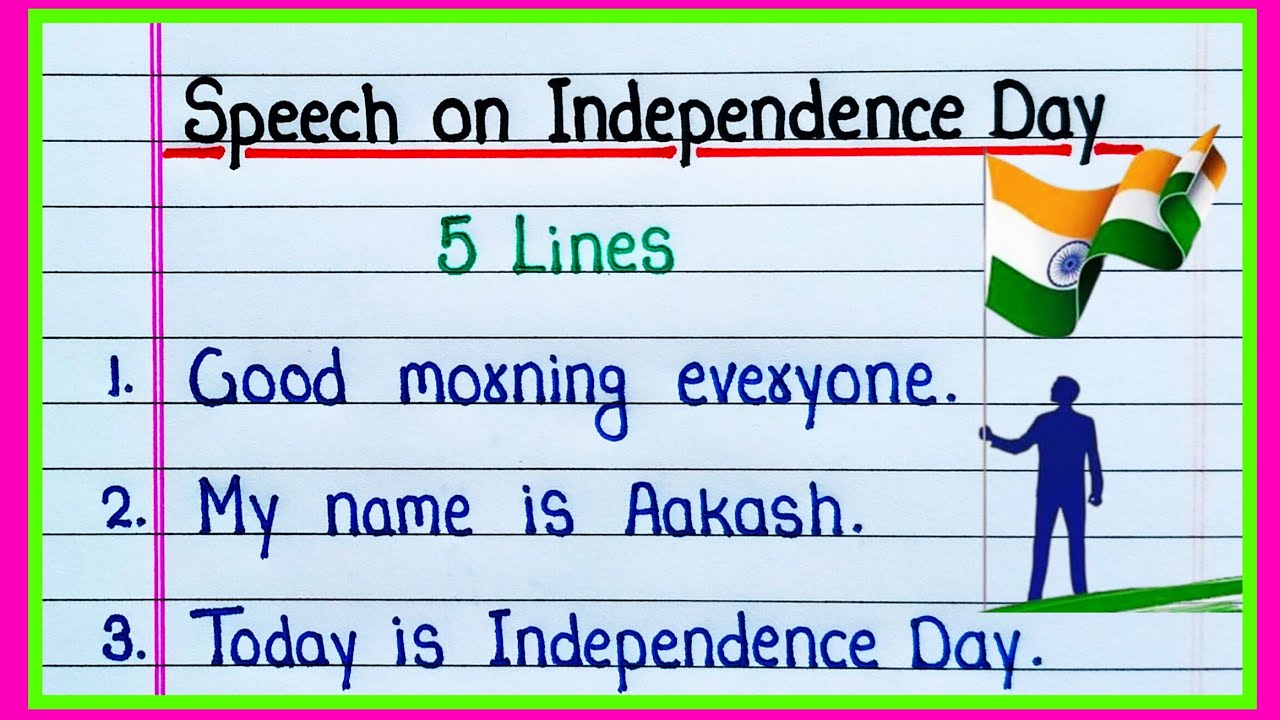 Speech on Independence Day
5 Lines
1. Good morning everyone.
2. My name is Aakash.
3. Today is Independence Day.